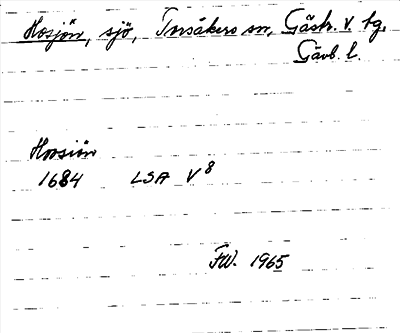 Hosjön, sjö, Torsåkers sn, Gästr. v. tg,
Gävb l.
Hossiön
1684 LSA V 8
FW. 1965